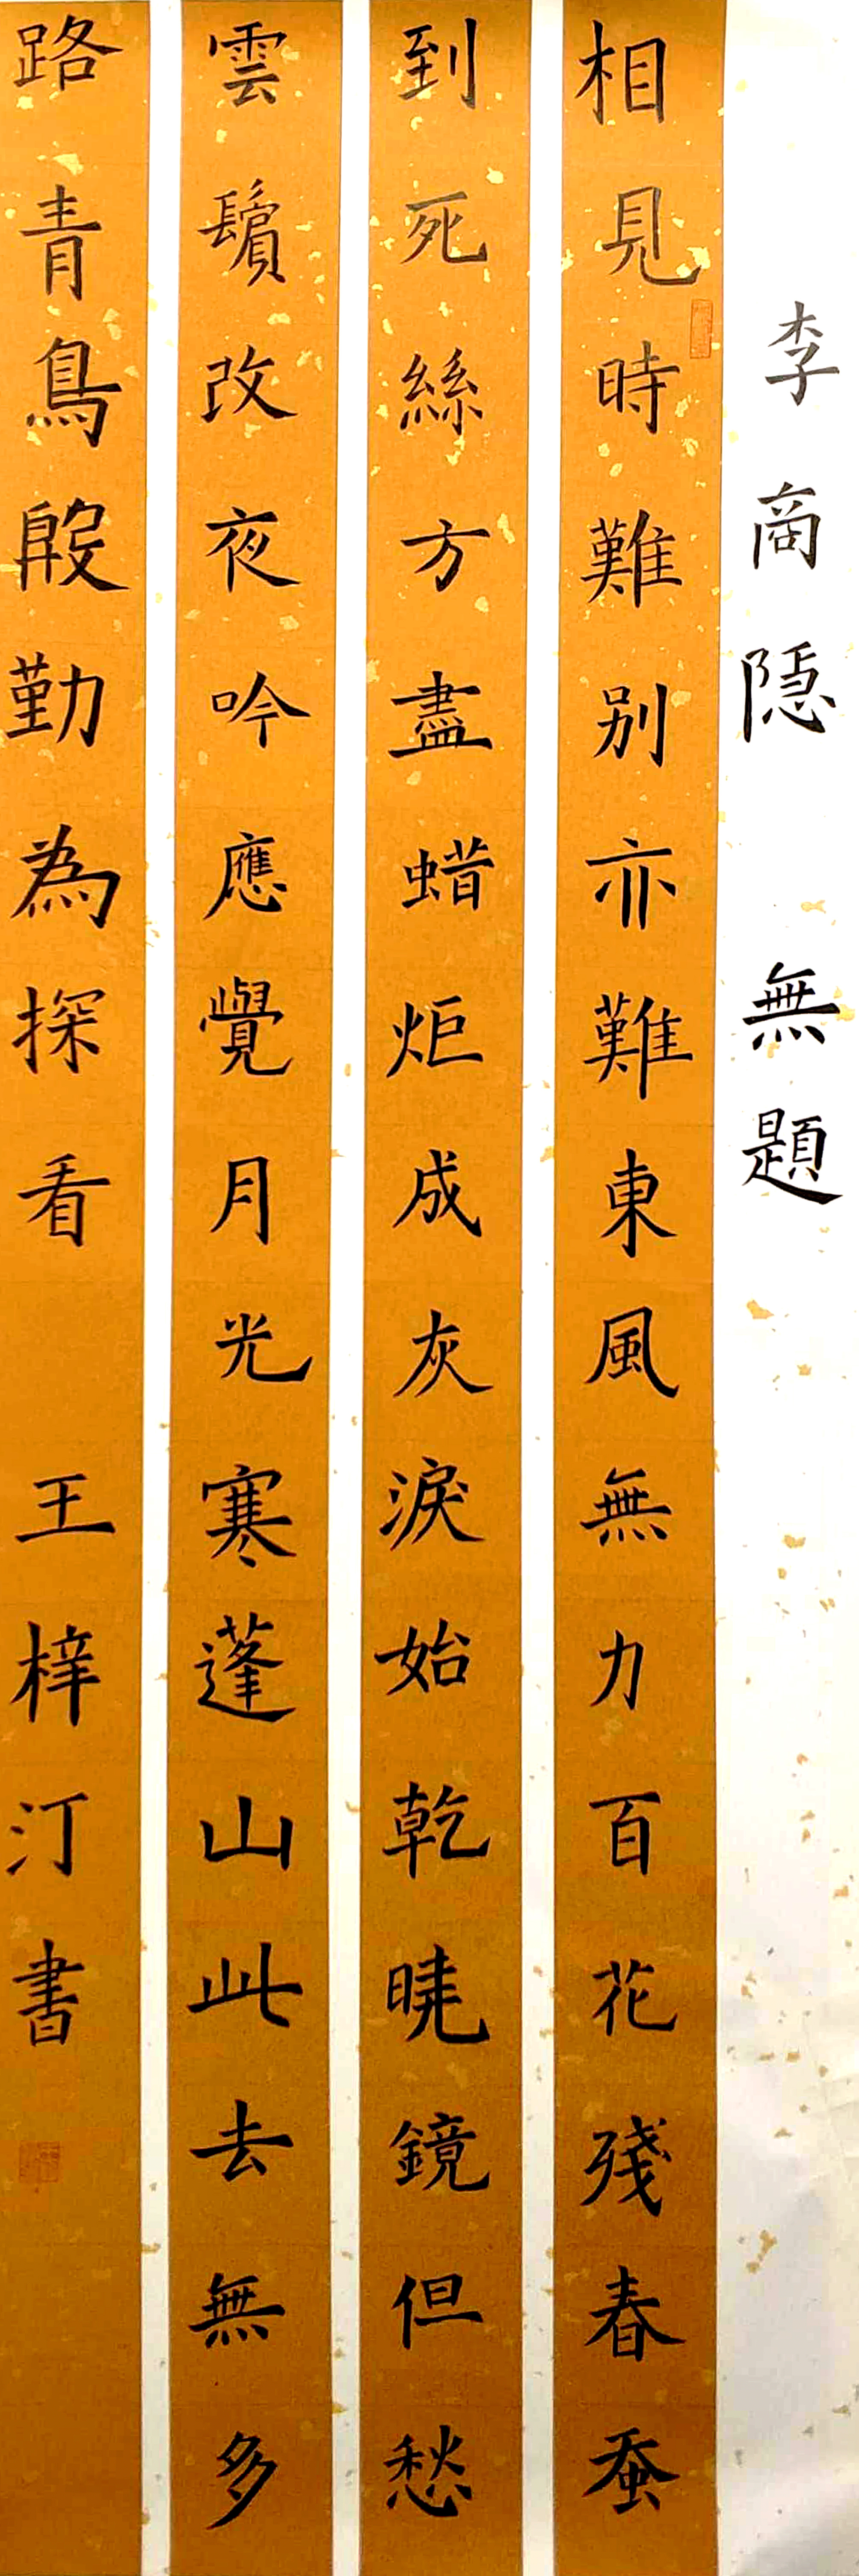 李商隱 無題
相見時難别亦難東風無力百花殘春蚕
到死絲方盡蜡炬成灰淚始乾曉鏡但愁
雲鬢改夜吟應覺月光寒蓬山此去無多
路青鳥殷勤為探看 王梓汀書